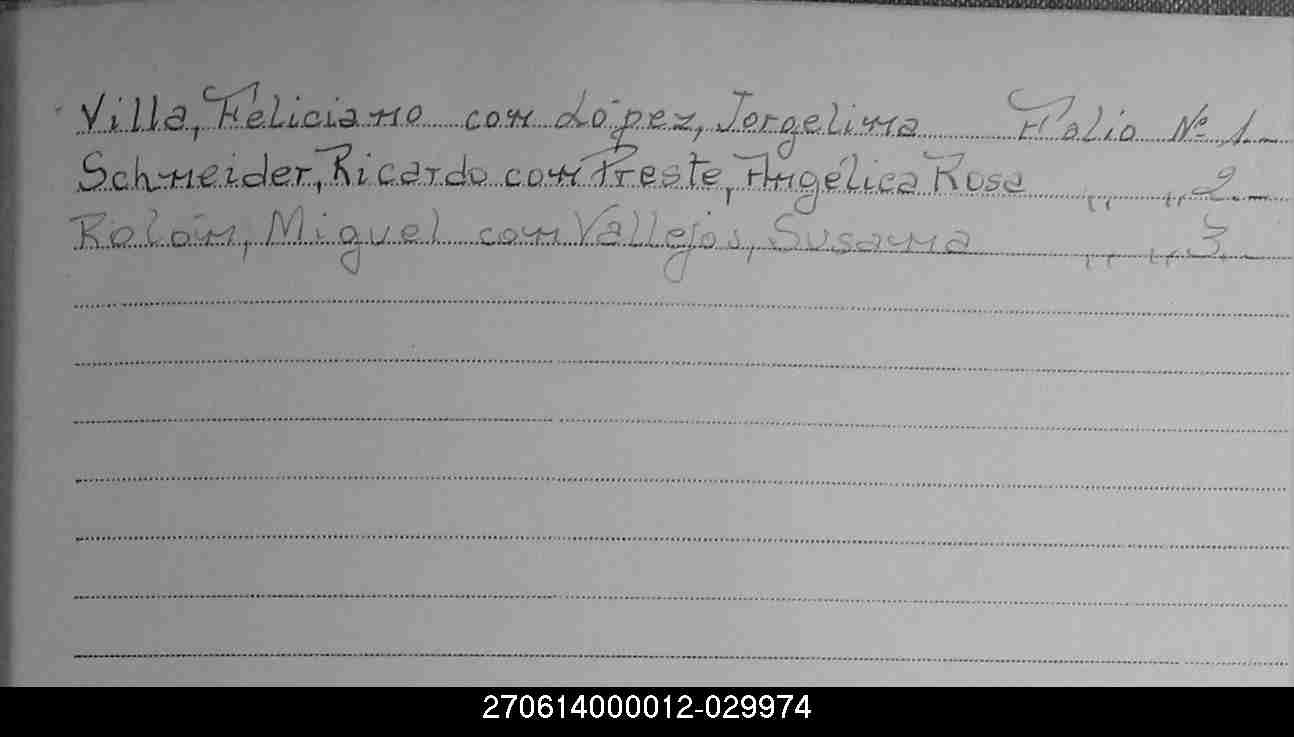 Villa, Feliciano con López, Jorgelina Folio Nº 1.-
Schneider, Ricardo con Preste, Angélica Rosa " " 2.-
Rolón, Miguel con Vallejos, Susana " " 3.-
270614000012-029974